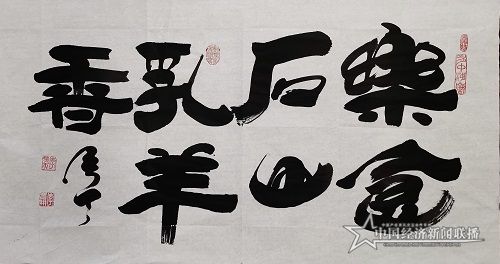 樂食
石山
乳羊
香
中国经济新闻联播